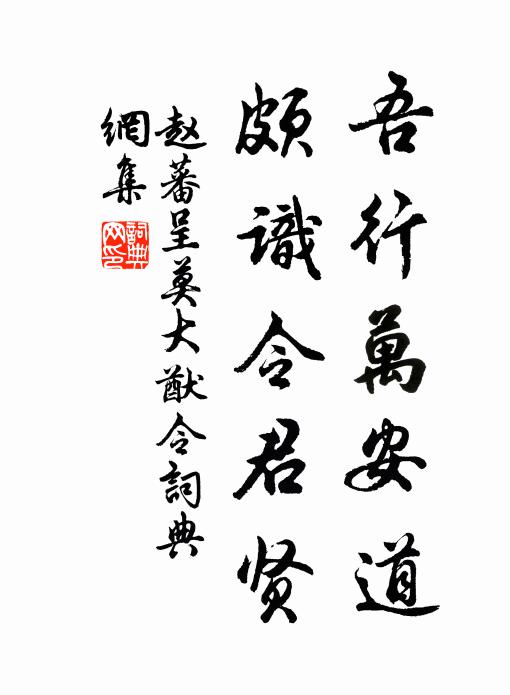 吾行萬安道
頗識令君贤
赵蕃呈莫大猷令詞典
網集
詞典网印